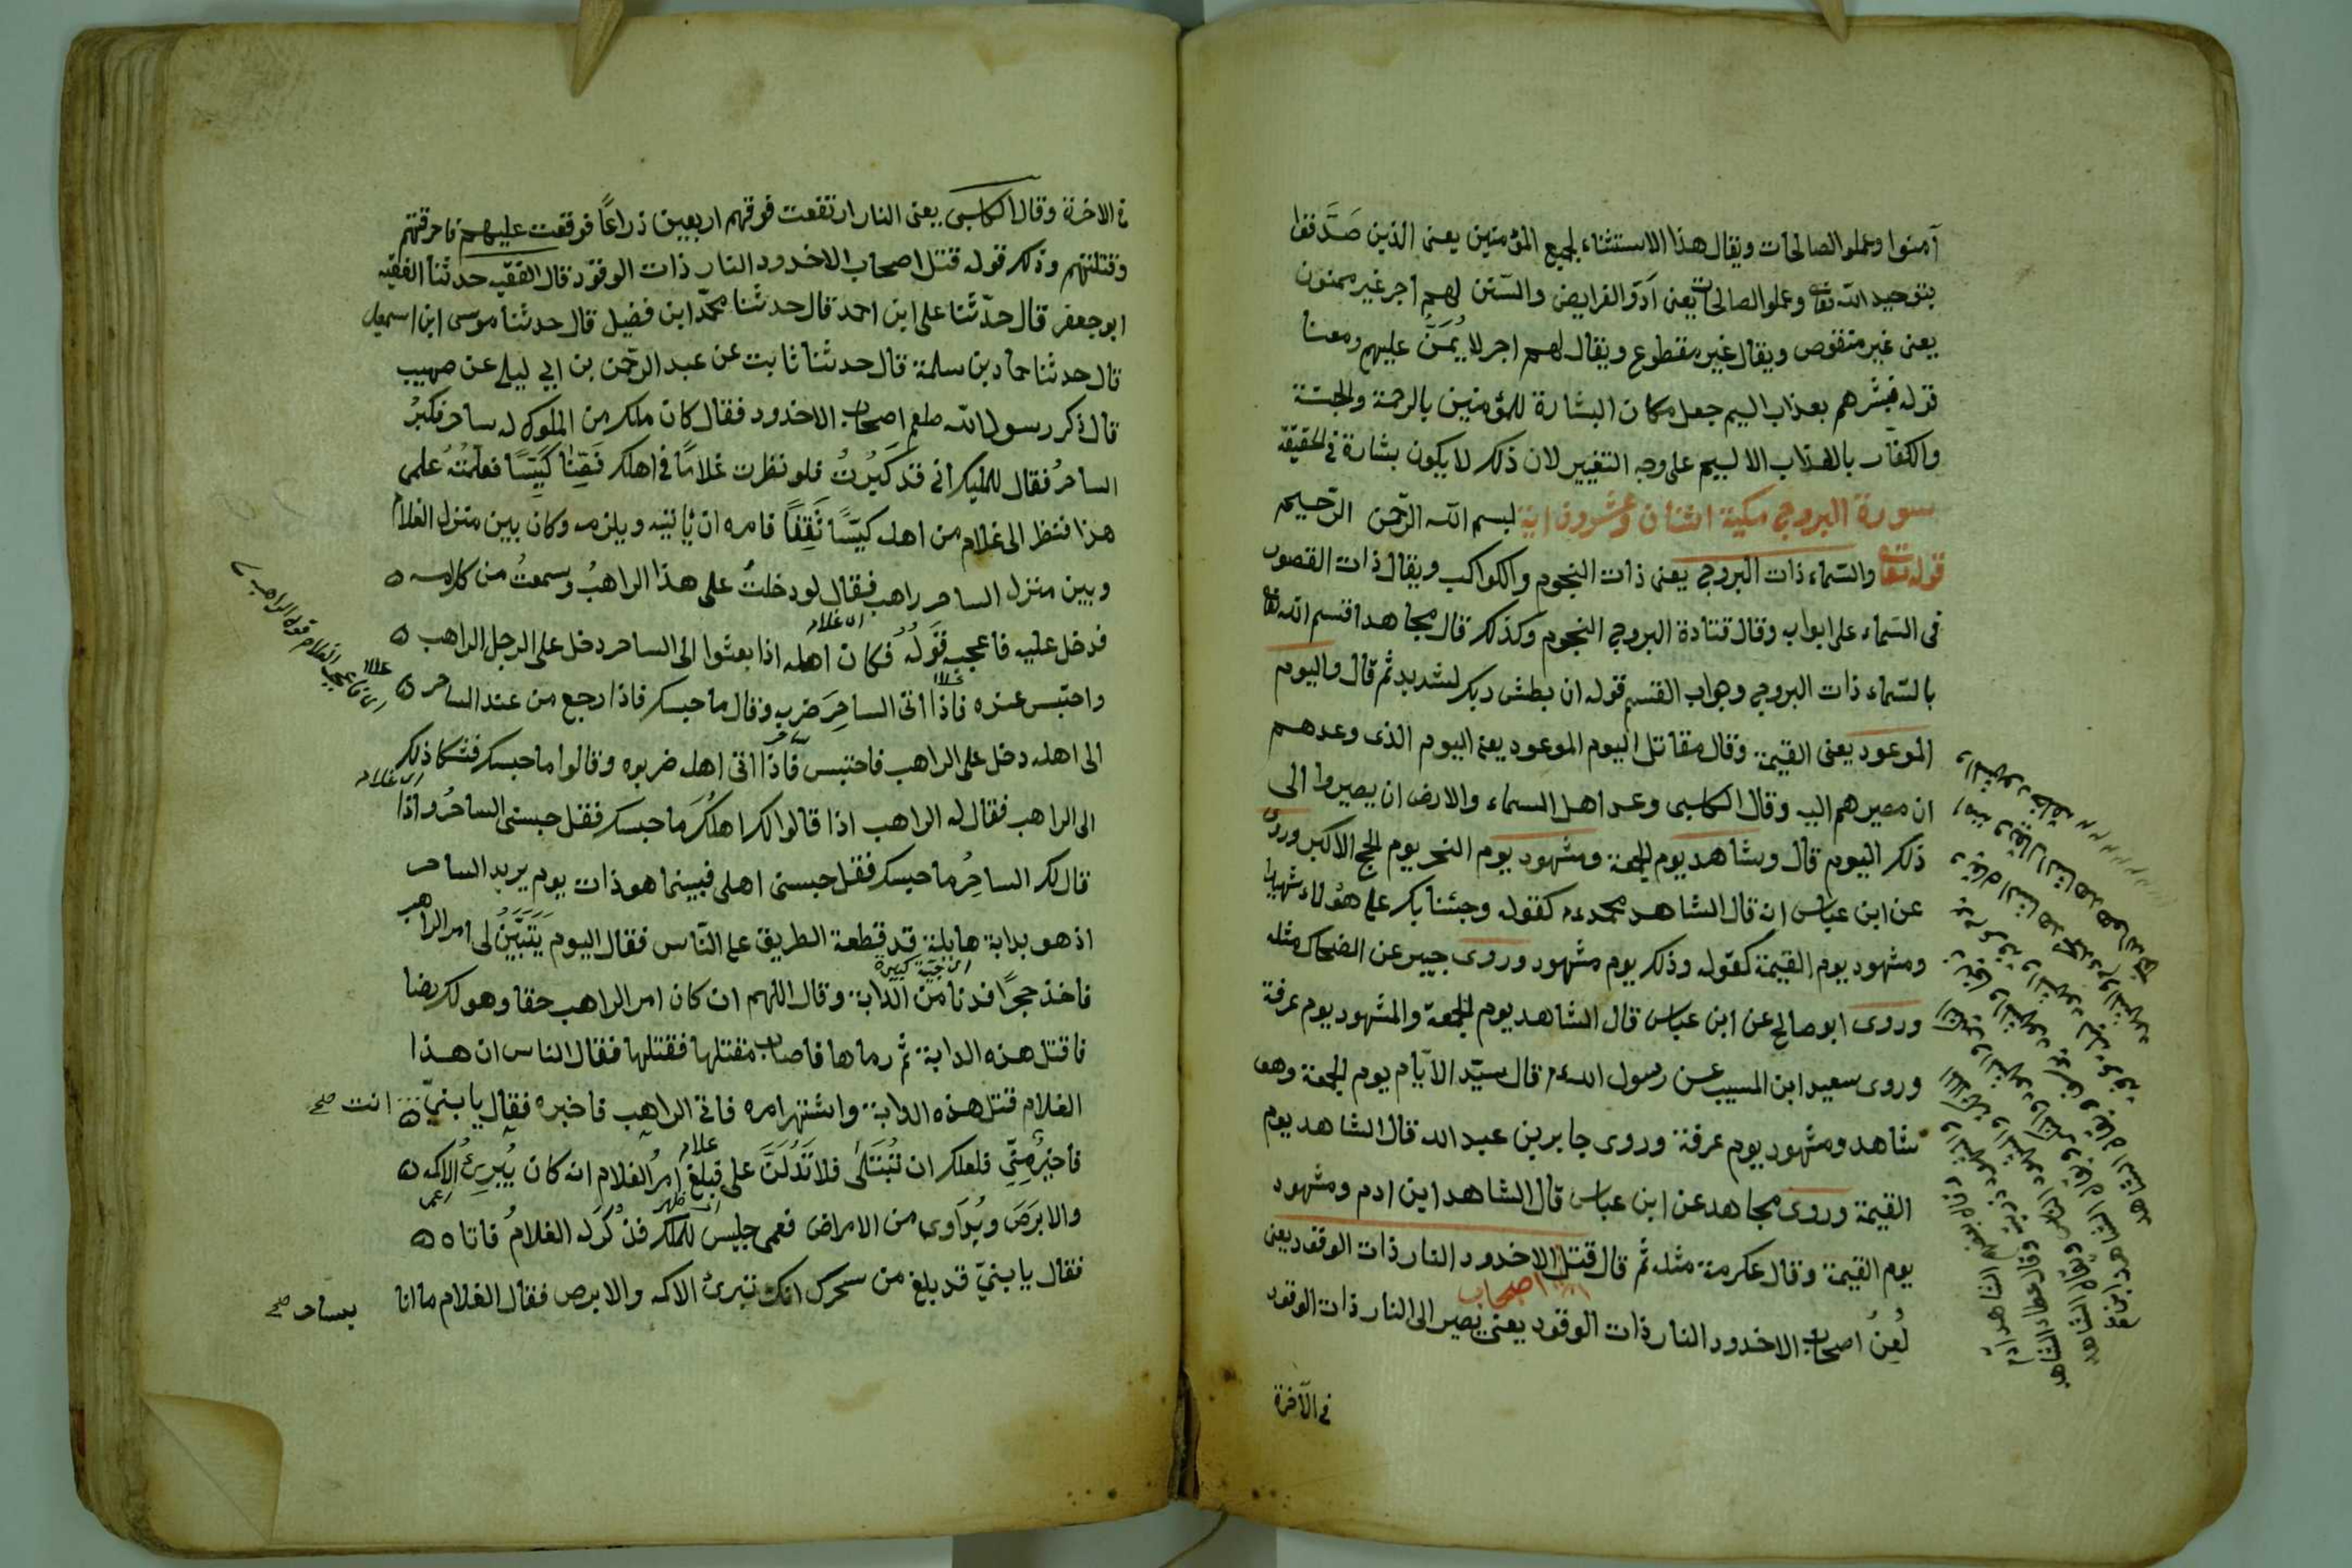 آمنوا وعملو الصالحات ويقال هذا الاستثناء لجميع المؤمنين يعنى الذين صدقوا
بتوحيد الله تعا وعملو الصالحات يعنى ادو الفرايض والسنن لهم اجر غير ممنون
يعنى غير منقوص ويقال غير مقطوع ويقال لهم اجر لا يُمَنُّ عليهم ومعنا
قوله فبشرهم بعذاب اليم جعل مكان البشارة للمؤمنين بالرحمة والجنة
والكفار بالعذاب الاليم على وجه التغيير لان ذلك لا يكون بشارة فى الحقيقة
سورة البروج مكية اثنان وعشرون اية بسم الله الرحمن الرحيم
قوله تعا والسماء ذات البروج يعنى ذات النجوم والكواكب ويقال ذات القصور
فى السماء على ابواب وقال قتادة البروج النجوم وكذلك قال مجاهد اقسم الله تعا
بالسماء ذات البروج وجواب القسم قوله ان بطش ربك لشديد ثم قال واليوم
الموعود يعنى القيمة وقال مقاتل اليوم الموعود يعنى اليوم الذى وعدهم
ان مصيرهم اليه وقال الكلبى وعد اهل السماء والارض ان يصيروا الى
ذلك اليوم قال وشاهد يوم الجمعة ومشهود يوم النحر يوم الحج الاكبر وروى
عن ابن عباس انه قال الشاهد محمد عم كقوله وجئنا بك على هؤلاء شهيدا
ومشهود يوم القيمة كقوله وذلك يوم مشهود وروى جيبر عن الضحاك مثله
وروى ابو صالح عن ابن عباس قال الشاهد يوم الجمعة والمشهود يوم عرفة
وروى سعيد ابن المسيب عن رسول الله عم قال سيد الايام يوم الجمعة وهو
شاهد ومشهود يوم عرفة وروى جابر بن عبد الله قال الشاهد يوم
القيمة وروى مجاهد عن ابن عباس قال الشاهد ابن ادم ومشهود
يوم القيمة وقال عكرمة مثله ثم قال قتل الاخدود النار ذات الوقود يعنى
اصحاب
لُعِنَ اصحاب الاخدود النار ذات الوقود يعنى يصير الى النار ذات الوقود
فى الآخرة
فى الاخرة وقال الكلبى يعنى النار ارتفعت فوقهم اربعين ذراعًا فوقعت عليهم فاحرقتهم
وقتلتهم وذلك قوله قتل اصحاب الاخدود النار ذات الوقود قال الفقيه حدثنا الفقيه
ابو جعفر قال حدثنا على ابن احمد قال حدثنا محمد ابن فضيل قال حدثنا موسى ابن اسمعيل
قال حدثنا حماد بن سلمة قال حدثنا ثابت عن عبد الرحمن بن ابي ليلى عن صهيب
قال ذكر رسول الله صلعم اصحاب الاخدود فقال كان ملك من الملوك له ساحر فكبر
الساحر فقال للملك انى قد كَبُرْتُ فلو نظرت غلامًا فى اهلك كَيِّسًا فعلمته علمى
هذا فنظر الى غلام من اهله كيسًا ثَقِفًا فامره ان ياتيه ويلزمه وكان بين منزل الغلام
وبين منزل الساحر راهب فقال لو دخلت على هذا الراهب وسمعت من كلامه
اى غلام
فدخل عليه فاعجبه قوله فكان اهله اذا بعثوا الى الساحر دخل على الرجل الراهب
واحتبس عنده فاذا اتى الساحر ضربه وقال ما حبسك فاذا رجع من عند الساحر
الى اهله دخل على الراهب فاحتبس فاذا اتى اهله ضربوه وقالوا ما حبسك فشكا ذلك
اى غلام
الى الراهب فقال له الراهب اذا قالوا لك اهلك ما حبسك فقل حبسنى الساحر واذا
قال لك الساحر ما حبسك فقل حبسنى اهلى فبينما هو ذات يوم يريد الساحر
اذ هو بدابة هايلة قد قطعة الطريق على الناس فقال اليوم يتبين لى امر الراهب
اى حية كبيرة
فاخذ حجرًا فدنا من الدابة وقال اللهم ان كان امر الراهب حقا وهو لك رضا
فاقتل هذه الدابة ثم رماها فاصاب مقتلها فقتلها فقال الناس ان هذا
الغلام قتل هذه الدابة واشتهر امره فاتى الراهب فاخبره فقال يا بنيّ انت صح
غلام
فاخير منّى فلعلك ان تُبتلى فلا تدلن على فبلغ امر الغلام انه كان يُبرئ الاكمه
والابرص ويداوى من الامراض فعمى جليس للملك فذكر له الغلام فاتاه
فقال يا بنيّ قد بلغ من سحرك انك تبرئ الاكمه والابرص فقال الغلام ما انا
بساحر صح